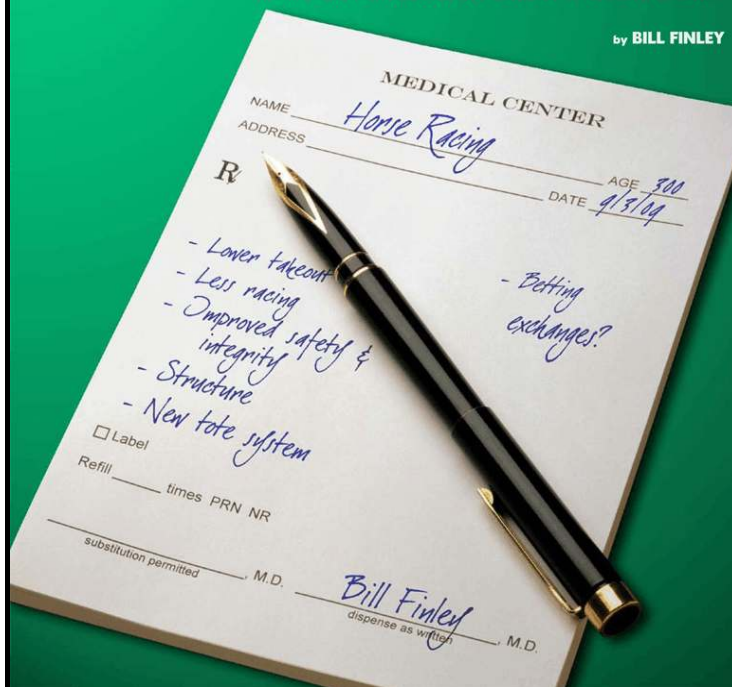 by BILL FINLEY
MEDICAL CENTER
NAME Horse Racing AGE 300
ADDRESS DATE 9/3/09
R
- Lower takeout
- Less racing
- Improved safety &
integrity
- Structure
- New tote system
- Betting
exchanges?
Label
Refill times PRN NR
substitution permitted , M.D.
Bill Finley
dispense as written , M.D.